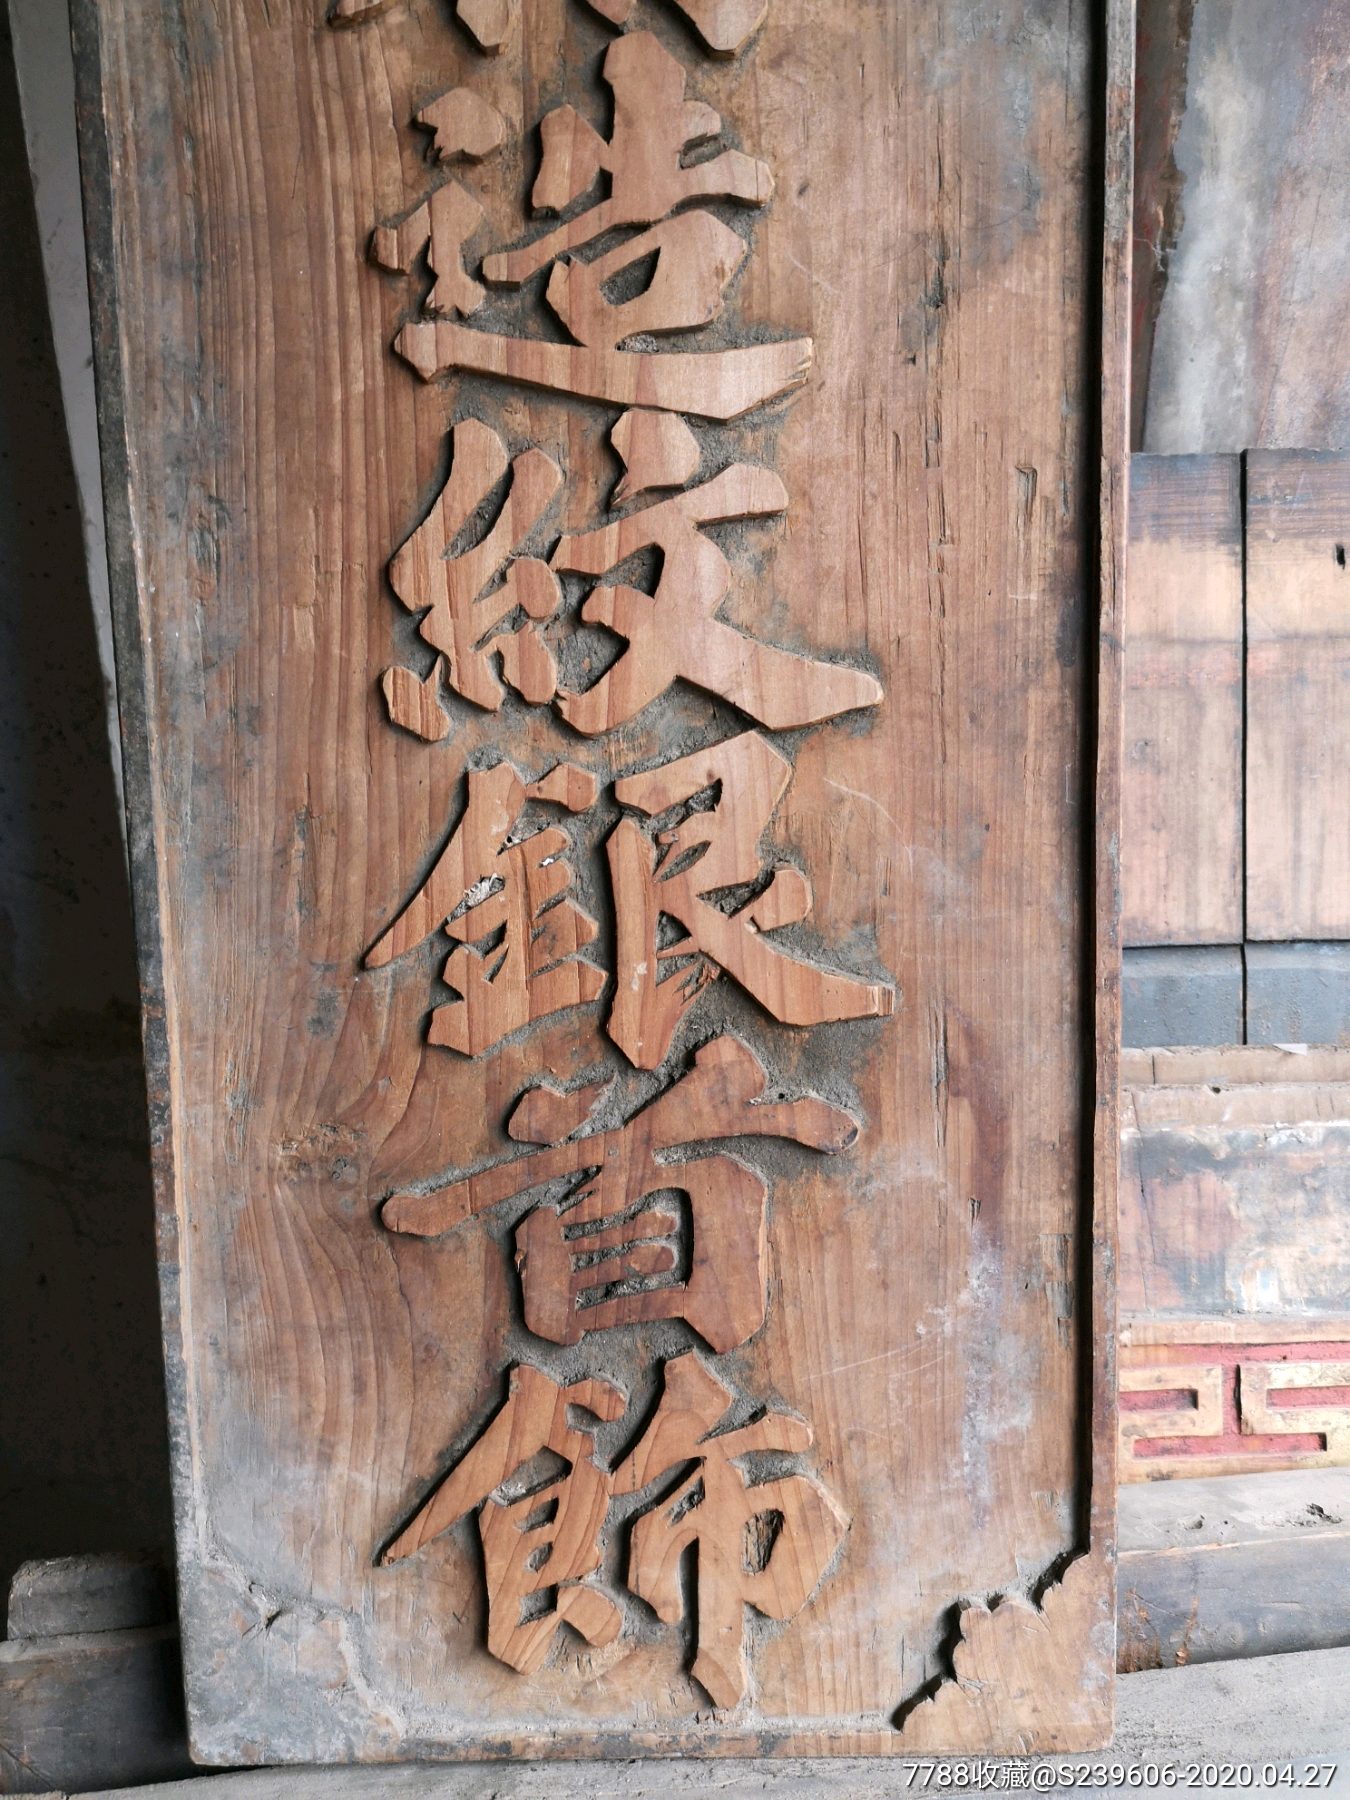 造紋銀首飾
7788收藏@S239606-2020.04.27